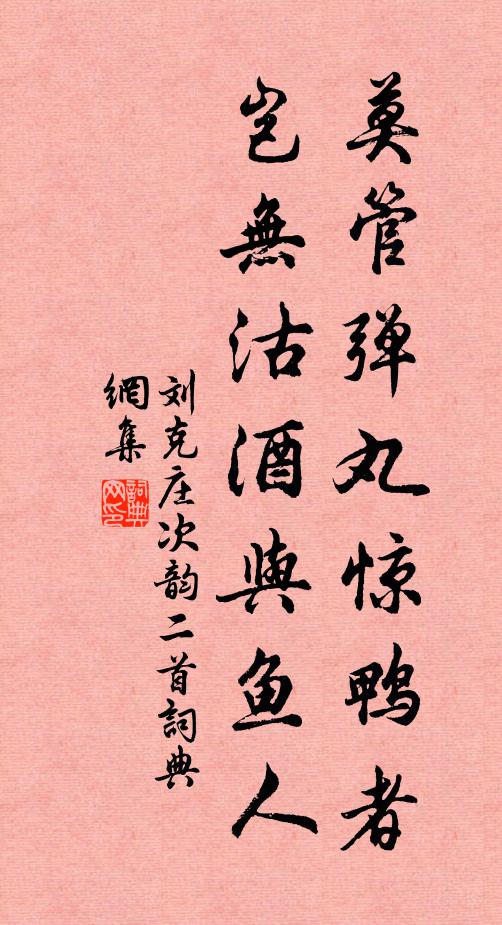 莫管弹丸惊鸭者
岂無沽酒與鱼人
刘克庄次韵二首詞典
網集
詞典
网印